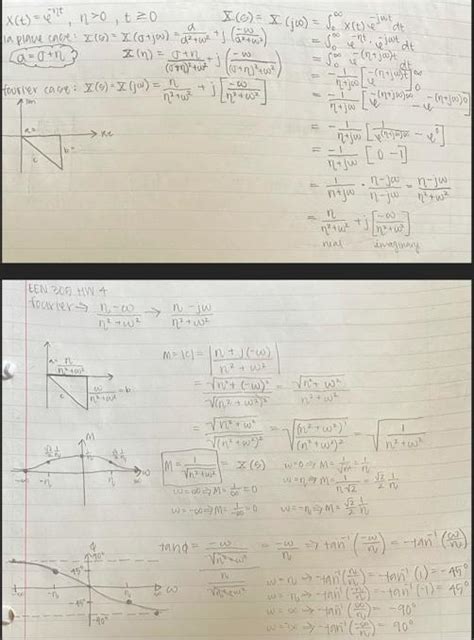 x(t) = e^{-ηt}, η>0, t≥0
laplace case: X(s) = X(σ+jω) = a/(a²+ω²) + j(-ω/(a²+ω²))
a = σ+η
X(η) = (σ+η)/((σ+η)²+ω²) + j(-ω/((σ+η)²+ω²))
fourier case: X(s) = X(jω) = η/(η²+ω²) + j[-ω/(η²+ω²)]
Im
a=
b=
c
Re
X(s) = X(jω) = ∫₀^∞ x(t) e^{-jωt} dt
= ∫₀^∞ e^{-ηt} · e^{-jωt} dt
= ∫₀^∞ e^{-(η+jω)t} dt
= -1/(η+jω) [e^{-(η+jω)t}]₀^∞
= -1/(η+jω) [e^{-(η+jω)∞} - e^{-(η+jω)0}]
= -1/(η+jω) [1/e^{(η+jω)∞} - e⁰]
= -1/(η+jω) [0-1]
= 1/(η+jω) · (η-jω)/(η-jω) = (η-jω)/(η²+ω²)
= η/(η²+ω²) + j[-ω/(η²+ω²)]
real imaginary
EEN 305 HW 4
fourier → (η-ω)/(η²+ω²) → (η-jω)/(η²+ω²)
a = η/(η²+ω²)
c
ω/(η²+ω²) = b
M = |c| = |(η+j(-ω))/(η²+ω²)|
= √(η²+(-ω)²)/√(η²+ω²)² = √(η²+ω²)/(η²+ω²)
= √(η²+ω²)/√(η²+ω²)² = √((η²+ω²)/(η²+ω²)²) = √(1/(η²+ω²))
M
√2/2 1/η
1/η
√2/2 1/η
-∞ -η η ∞ ω
M = 1/√(η²+ω²) = X(s)
ω=∞ ⇒ M = 1/∞ = 0
ω=-∞ ⇒ M = 1/∞ = 0
ω=0 ⇒ M = 1/√η² = 1/η
ω=η ⇒ M = 1/(η√2) = √2/2 1/η
ω=-η ⇒ M = √2/2 1/η
φ
90°
45°
-45°
-90°
ω
tanφ = (-ω/√(η²+ω²))/(η/√(η²+ω²)) = -ω/η ⇒ tan⁻¹(-ω/η) = -tan⁻¹(ω/η)
ω=η ⇒ -tan⁻¹(η/η) = -tan⁻¹(1) = -45°
ω=-η ⇒ -tan⁻¹(-η/η) = -tan⁻¹(-1) = 45°
ω=∞ ⇒ -tan⁻¹(∞/η) = -90°
ω=-∞ ⇒ -tan⁻¹(-∞/η) = 90°